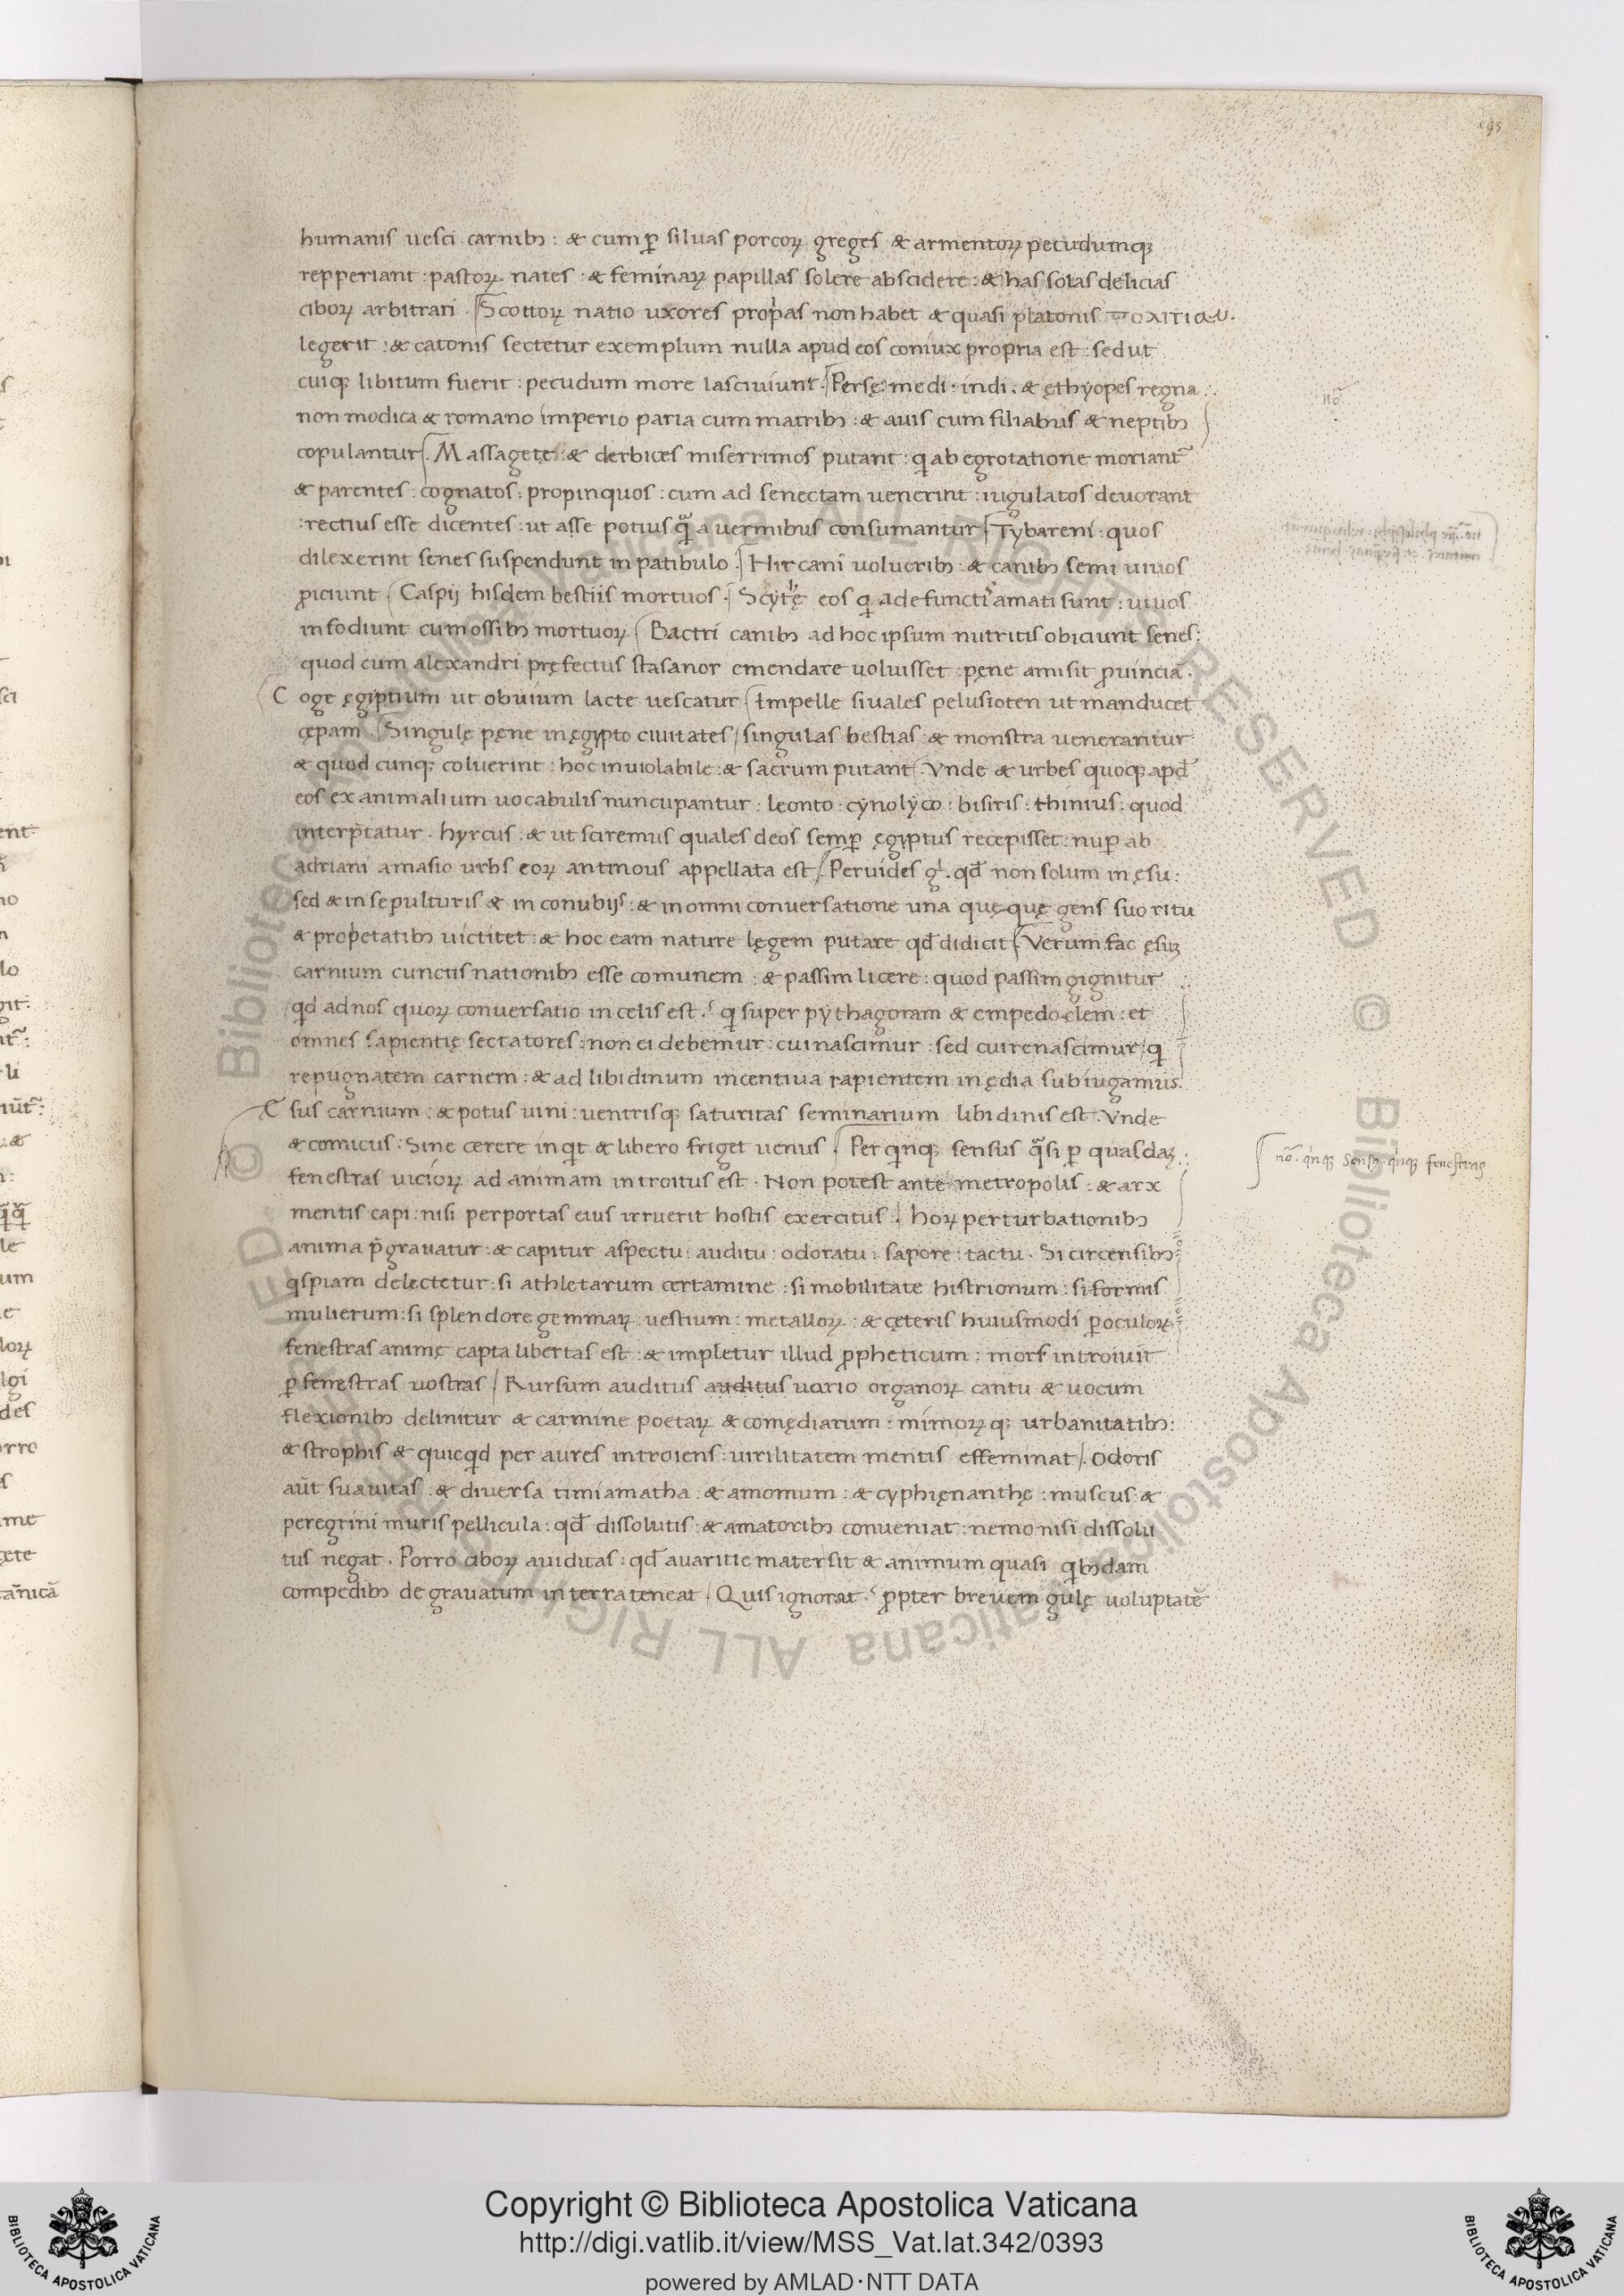 195
humanis uesci carnibꝫ : & cum ꝑ siluas porcoꝝ greges & armentoꝝ pecudumqꝫ
repperiant : pastoꝝ nates : & feminaꝝ papillas solere abscidere : & has solas delicias
ciboꝝ arbitrari . Scottoꝝ natio uxores propͥas non habet & quasi platonis
legerit : & catonis sectetur exemplum nulla apud eos coniux propria est : sed ut
cuiqꝫ libitum fuerit : pecudum more lasciuiunt . Persę : medi : indi . & ęthyopes regna
nō
non modica & romano imperio paria cum matribꝫ : & auis cum filiabus & neptibꝫ
copulantur . Massagetę : & derbices miserrimos putant : qͥ ab egrotatione moriant᷑
& parentes : cognatos : propinquos : cum ad senectam uenerint : iugulatos deuorant
: rectius esse dicentes : ut a sse potius qͣ̄ a uermibus consumantur . Tybareni : quos
dilexerint senes suspendunt in patibulo . Hircani uolucribꝫ : & canibꝫ semi uiuos
ꝓiciunt . Caspij hisdem bestiis mortuos . Scytʰę eos qͥ a defunctiˢ amati sunt : uiuos
infodiunt cum ossibꝫ mortuoꝝ . Bactri canibꝫ ad hoc ipsum nutritis obiciunt senes :
quod cum alexandri pręfectus stasanor emendare uoluisset : pęne amisit ꝓuinciā .
Coge ęgiptium ut obuium lacte uescatur . Impelle si uales pelusioten ut manducet
cępam . Singulę pęne in ęgypto ciuitates / singulas bestias : & monstra uenerantur
& quod cunqꝫ coluerint : hoc inuiolabile : & sacrum putant . Vnde & urbes quoqꝫ apđ
eos ex animalium uocabulis nuncupantur : leonto : cynolyco : bisiris : thinius : quod
interp̄tatur . hyrcus : & ut sciremus quales deos semꝑ ęgiptus recepisset : nuꝑ ab
adriani amasio urbs eoꝝ antinous appellata est . Peruides gͥ . qđ non solum in ęsu :
sed & in sepulturis & in conubijs : & in omni conuersatione una quęquę gens suo ritu
& propͥetatibꝫ uictitet : & hoc eam nature lęgem putare qđ didicit . Verum fac ęsuꝫ
carnium cunctis nationibꝫ esse comunem : & passim licere : quod passim gignitur
qđ ad nos quoꝝ conuersatio in celis est . qͥ super pythagoram & empedoclem : et
omnes sapientię sectatores : non ei debemur : cui nascimur : sed cui renascimur / qͥ
repugnatem carnem : & ad libidinum incentiua rapientem inędia subiugamus .
Esus carnium : & potus uini : uentrisqꝫ saturitas seminarium libidinis est . Vnde
& comicus : Sine cerere inqͥt & libero friget uenus . Per qͥnqꝫ sensus qͣsi ꝑ quasdaꝫ
nō . qͥnqꝫ sensꝰ . qͥnqꝫ fenestras
fenestras uicioꝝ ad animam introitus est . Non potest ante metropolis : & arx
mentis capi : nisi per portas eius irruerit hostis exercitus . hoꝝ perturbationibꝫ
anima p̄grauatur : & capitur aspectu : auditu : odoratu : sapore : tactu . Si circensibꝫ
qͥspiam delectetur : si athletarum certamine : si mobilitate histrionum : si formis
mulierum : si splendore gemmaꝝ : uestium : metalloꝝ : & cęteris huiusmodi ꝑ oculoꝝ
fenestras animę capta libertas est : & impletur illud ꝓpheticum : mors introiuit
ꝑ fenęstras uostras / Rursum auditus auditus uario organoꝝ cantu & uocum
flexionibꝫ delinitur & carmine poetaꝝ & comędiarum : mimoꝝ qꝫ urbanitatibꝫ :
& strophis & quicqͥd per aures introiens : uirilitatem mentis effeminat / . Odoris
aūt suauitas : & diuersa timiamatha : & amomum : & cyphięnanthę : muscus : &
peregrini muris pellicula : qđ dissolutis : & amatoribꝫ conueniat : nemo nisi dissolu
tus negat . Porro ciboꝝ auiditas : qđ auaritie mater sit & animum quasi qͥbꝫdam
compedibꝫ de grauatum in terra teneat . Quis ignorat . ꝓpter breuem gulę uoluptatē
Copyright © Biblioteca Apostolica Vaticana
http://digi.vatlib.it/view/MSS_Vat.lat.342/0393
powered by AMLAD·NTT DATA
BIBLIOTECA APOSTOLICA VATICANA
BIBLIOTECA APOSTOLICA VATICANA